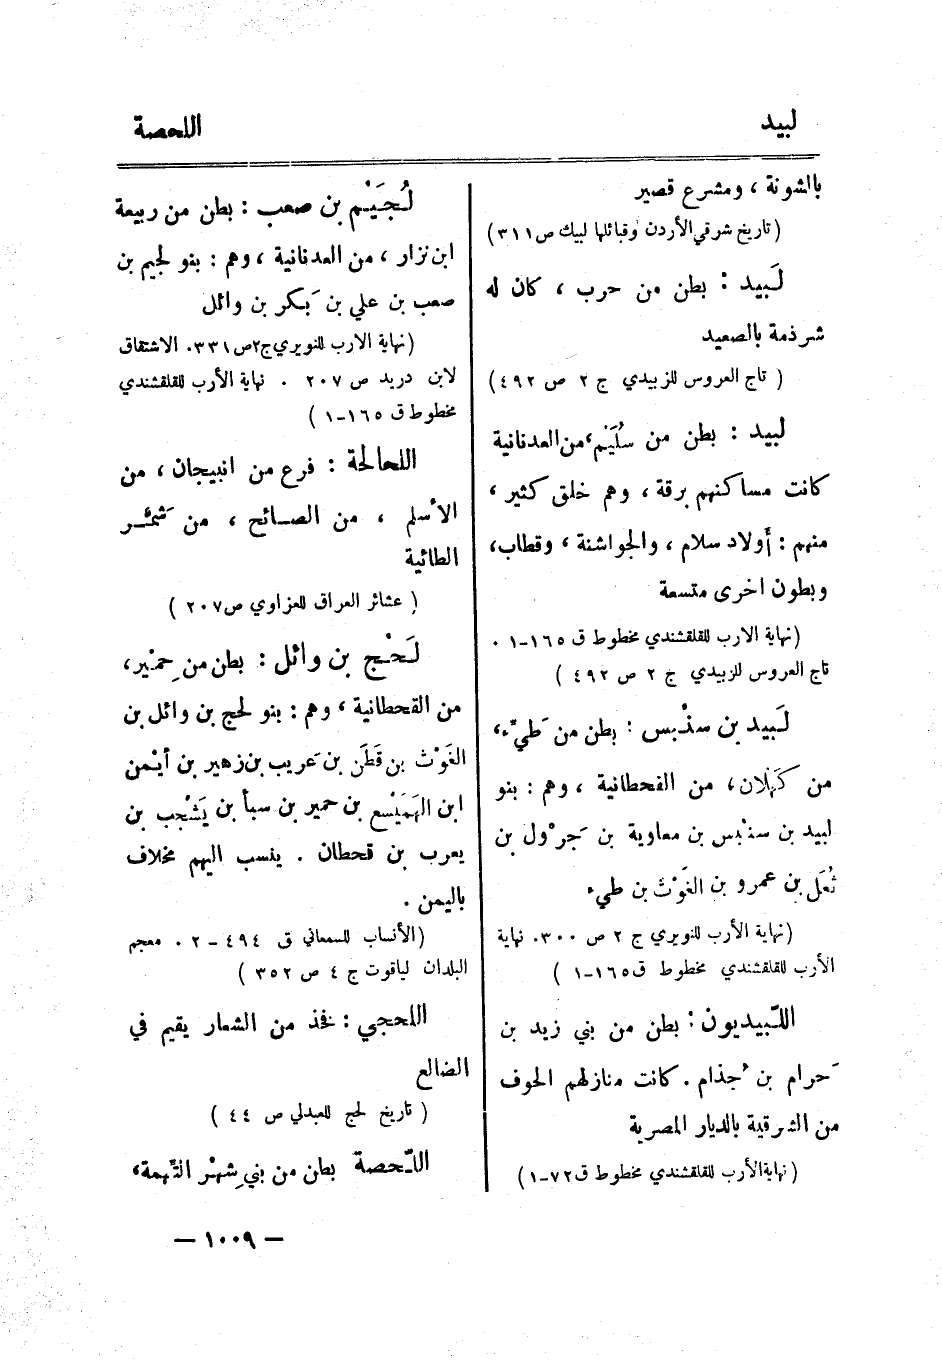 لبيد
اللحصة
بالشونة ، ومشرع قصير
( تاريخ شرقي الأردن وقبائلها لبيك ص ٣١١ )
لَبيد : بطن من حرب ، كان له
شرذمة بالصعيد
( تاج العروس للزبيدي ج ٢ ص ٤٩٢ )
لبيد : بطن من سُلَيْم ، من العدنانية
كانت مساكنهم برقة ، وهم خلق كثير ،
منهم : أولاد سلام ، والجواشنة ، وقطاب ،
وبطون اخرى متسعة
( نهاية الارب للقلقشندي مخطوط ق ١٦٥-١ .
تاج العروس للزبيدي ج ٢ ص ٤٩٢ )
لَبيد بن سنْبس : بطن من طَيِّء ،
من كَهْلان ، من القحطانية ، وهم : بنو
لبيد بن سنبس بن معاوية بن جَرْول بن
ثُعَل بن عمرو بن الغَوْث بن طيء
( نهاية الأرب للنويري ج ٢ ص ٣٠٠ . نهاية
الأرب للقلقشندي مخطوط ق ١٦٥-١ )
اللّبيديون : بطن من بني زيد بن
حَرام بن جُذام . كانت منازلهم الحوف
من الشرقية بالديار المصرية
( نهاية الأرب للقلقشندي مخطوط ق ٧٢-١ )
لُجَيْم بن صعب : بطن من ربيعة
ابن نزار ، من العدنانية ، وهم : بنو لجيم بن
صعب بن علي بن بَكر بن وائل
( نهاية الارب للنويري ج ٢ ص ٣٣١ . الاشتقاق
لابن دريد ص ٢٠٧ . نهاية الأرب للقلقشندي
مخطوط ق ١٦٥-١ )
اللحالحة : فرع من انبيجان ، من
الأسلم ، من الصائح ، من شَمَّر
الطائية
( عشائر العراق للعزاوي ص ٢٠٧ )
لَحْج بن وائل : بطن من حِمْير ،
من القحطانية ، وهم : بنو لحج بن وائل بن
الغَوْث بن قَطَن بن عَريب بن زهير بن أيْمن
ابن الهَمَيْسع بن حمير بن سبأ بن يَشْجب بن
يعرب بن قحطان . ينسب اليهم مخلاف
باليمن .
( الأنساب للسمعاني ق ٤٩٤ - ٢ . معجم
البلدان لياقوت ج ٤ ص ٣٥٢ )
اللحجي : فخذ من الشعار يقيم في
الضالع
( تاريخ لحج للعبدلي ص ٤٤ )
اللّحصة بطن من بني شِهْر التِّهمة ،
— ١٠٠٩ —